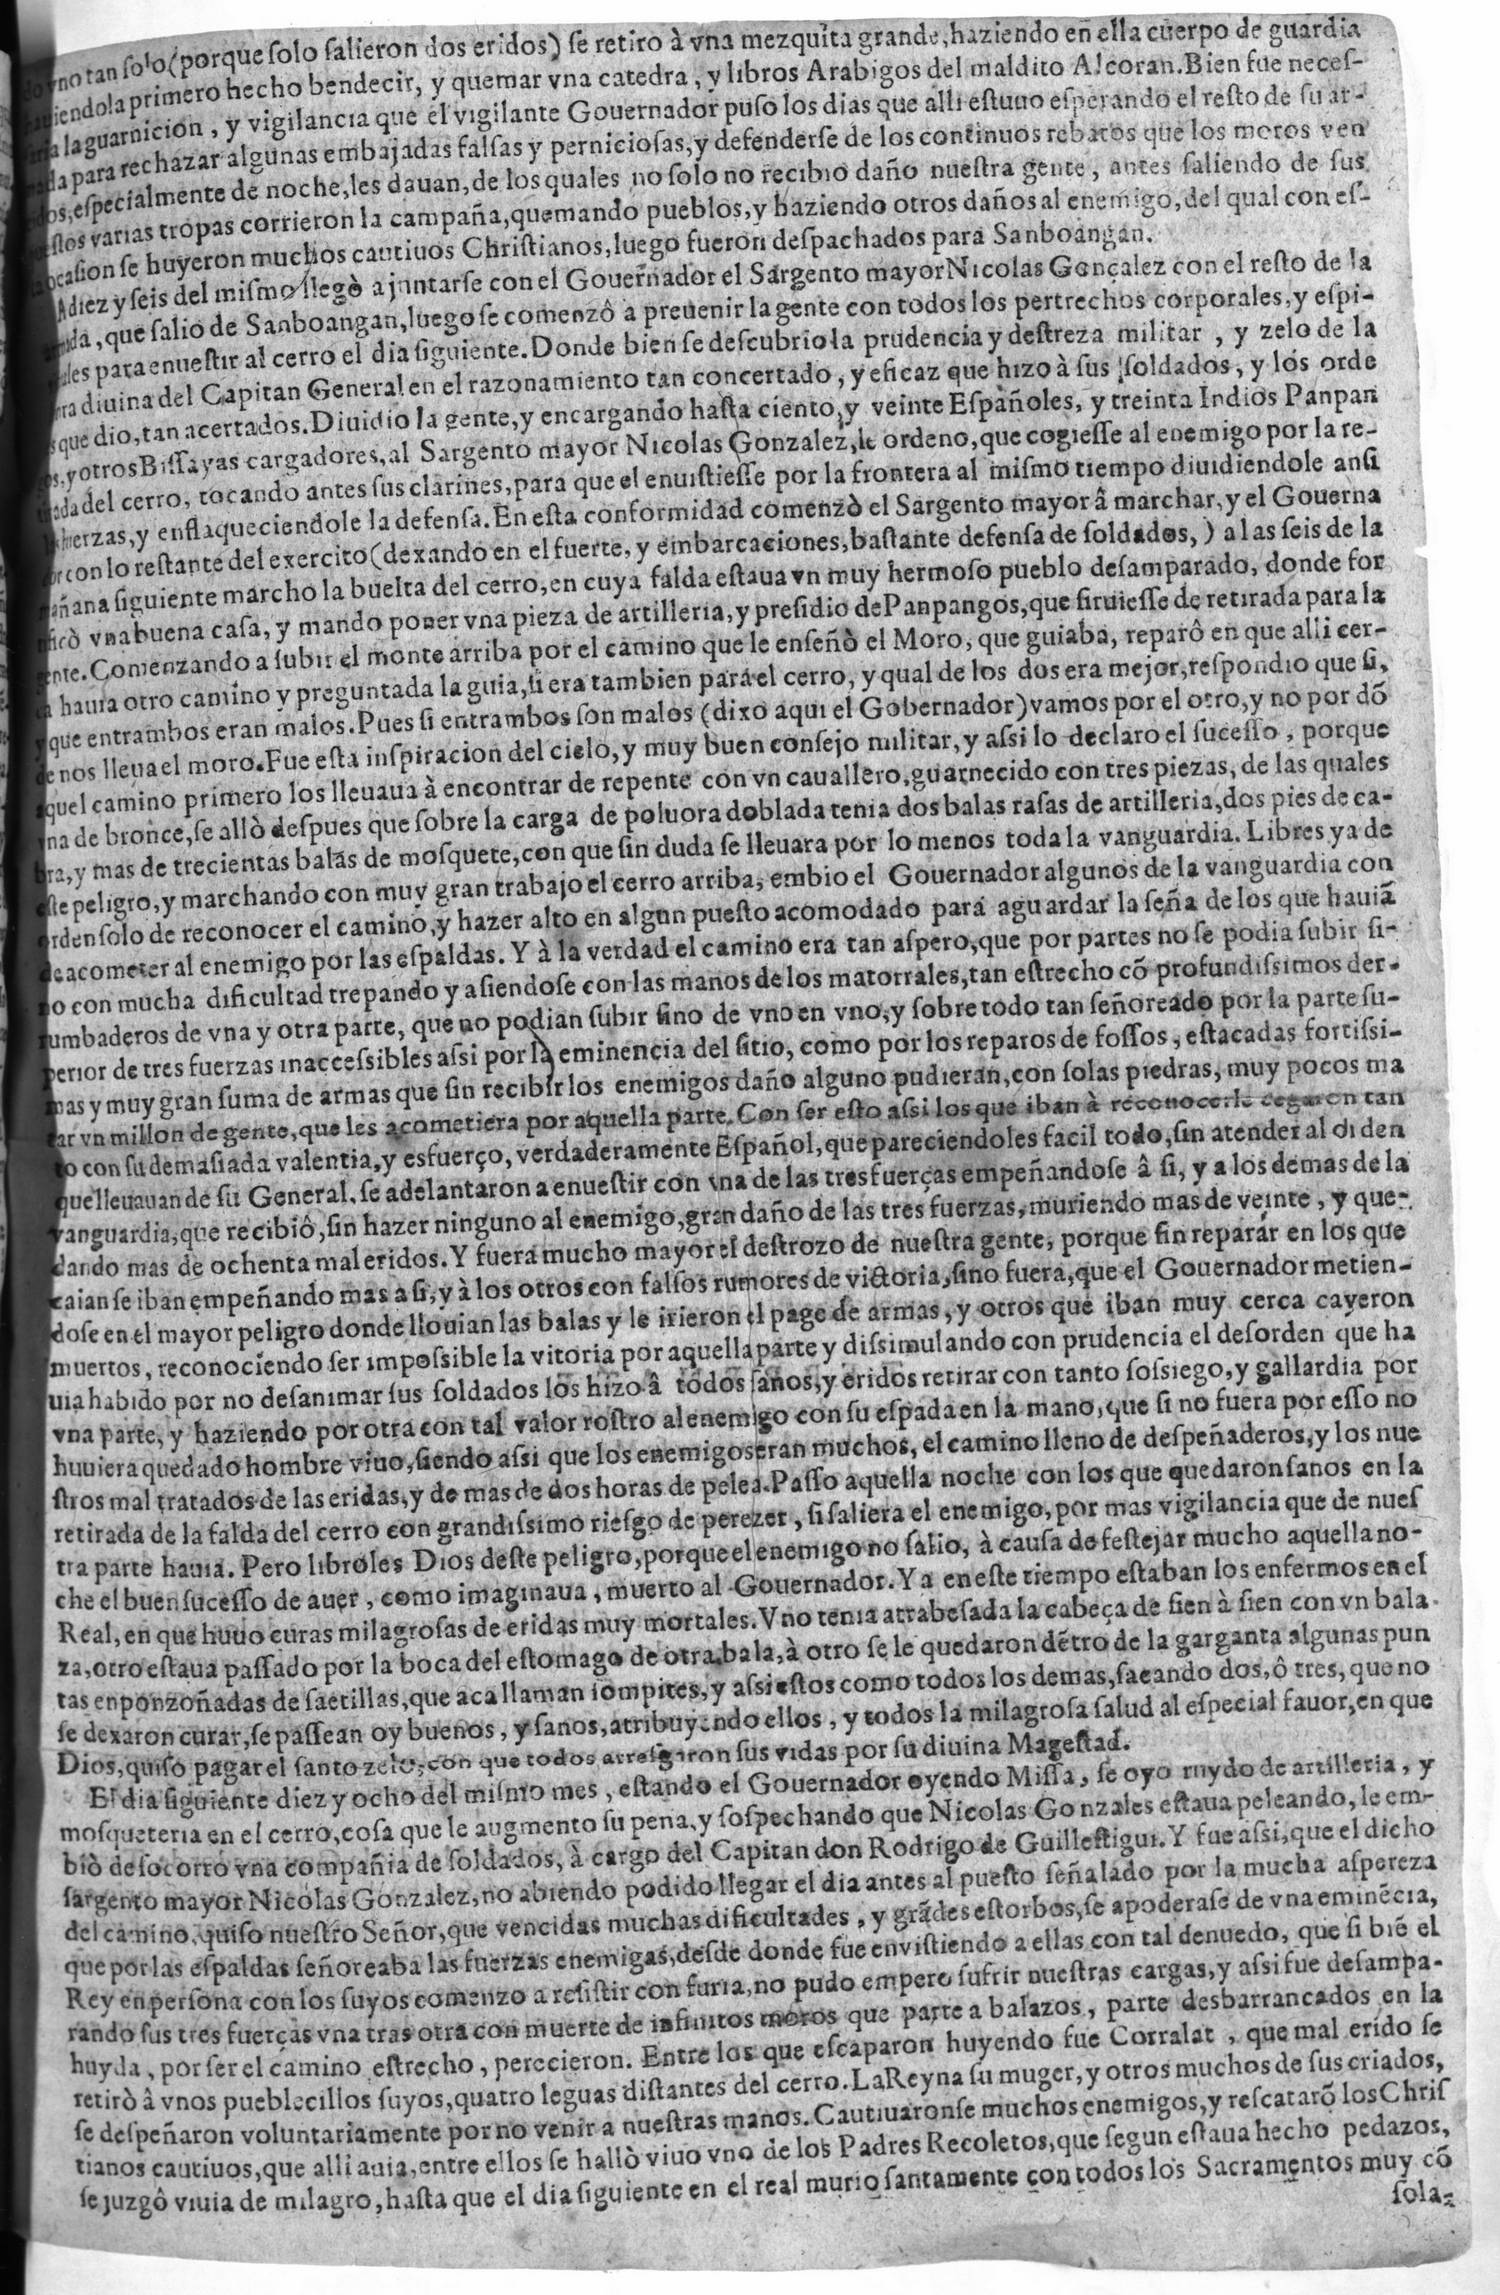 do vno tan solo (porque solo salieron dos eridos) se retiro à vna mezquita grande, haziendo en ella cuerpo de guardia
hauiendola primero hecho bendecir, y quemar vna catedra, y libros Arabigos del maldito Alcoran. Bien fue neces-
saria la guarnicion, y vigilancia que el vigilante Gouernador puso los dias que alli estuuo esperando el resto de su ar-
mada para rechazar algunas embajadas falsas y perniciosas, y defenderse de los continuos rebatos que los moros ven
cidos, especialmente de noche, les dauan, de los quales no solo no recibio daño nuestra gente, antes saliendo de sus
puestos varias tropas corrieron la campaña, quemando pueblos, y haziendo otros daños al enemigo, del qual con es-
ta ocasion se huyeron muchos cautiuos Christianos, luego fueron despachados para Sanboangan.
A diez y seis del mismo llegò a juntarse con el Gouernador el Sargento mayor Nicolas Gonçalez con el resto de la
armada, que salio de Sanboangan, luego se comenzô a preuenir la gente con todos los pertrechos corporales, y espi-
rituales para enuestir al cerro el dia siguiente. Donde bien se descubrio la prudencia y destreza militar, y zelo de la
honra diuina del Capitan General en el razonamiento tan concertado, y eficaz que hizo à sus soldados, y los orde
nes que dio, tan acertados. Diuidio la gente, y encargando hasta ciento, y veinte Españoles, y treinta Indios Panpan
gos, y otros Bissayas cargadores, al Sargento mayor Nicolas Gonzalez, le ordeno, que cogiesse al enemigo por la re-
tirada del cerro, tocando antes sus clarines, para que el enuistiesse por la frontera al mismo tiempo diuidiendole ansi
las fuerzas, y enflaqueciendole la defensa. En esta conformidad comenzò el Sargento mayor â marchar, y el Gouerna
dor con lo restante del exercito (dexando en el fuerte, y embarcaciones, bastante defensa de soldados,) a las seis de la
mañana siguiente marcho la buelta del cerro, en cuya falda estaua vn muy hermoso pueblo desamparado, donde for
tificò vna buena casa, y mando poner vna pieza de artilleria, y presidio de Panpangos, que siruiesse de retirada para la
gente. Comenzando a subir el monte arriba por el camino que le enseñò el Moro, que guiaba, reparô en que alli cer-
ca hauia otro camino y preguntada la guia, si era tambien para el cerro, y qual de los dos era mejor, respondio que si,
y que entrambos eran malos. Pues si entrambos son malos (dixo aqui el Gobernador) vamos por el otro, y no por dõ
de nos lleua el moro. Fue esta inspiracion del cielo, y muy buen consejo militar, y assi lo declaro el sucesso, porque
aquel camino primero los lleuaua à encontrar de repente con vn cauallero, guarnecido con tres piezas, de las quales
vna de bronce, se allò despues que sobre la carga de poluora doblada tenia dos balas rasas de artilleria, dos pies de ca-
bra, y mas de trecientas balas de mosquete, con que sin duda se lleuara por lo menos toda la vanguardia. Libres ya de
este peligro, y marchando con muy gran trabajo el cerro arriba, embio el Gouernador algunos de la vanguardia con
orden solo de reconocer el camino, y hazer alto en algun puesto acomodado para aguardar la seña de los que hauiã
de acometer al enemigo por las espaldas. Y à la verdad el camino era tan aspero, que por partes no se podia subir si-
no con mucha dificultad trepando y asiendose con las manos de los matorrales, tan estrecho cõ profundissimos der-
rumbaderos de vna y otra parte, que no podian subir sino de vno en vno, y sobre todo tan señoreado por la parte su-
perior de tres fuerzas inaccessibles assi por la eminencia del sitio, como por los reparos de fossos, estacadas fortissi-
mas y muy gran suma de armas que sin recibir los enemigos daño alguno pudieran, con solas piedras, muy pocos ma
tar vn millon de gente, que les acometiera por aquella parte. Con ser esto assi los que iban à reconocerle cegaron tan
to con su demasiada valentia, y esfuerço, verdaderamente Español, que pareciendoles facil todo, sin atender al orden
que lleuauan de su General, se adelantaron a enuestir con vna de las tres fuerças empeñandose â si, y a los demas de la
vanguardia, que recibiô, sin hazer ninguno al enemigo, gran daño de las tres fuerzas, muriendo mas de veinte, y que-
dando mas de ochenta mal eridos. Y fuera mucho mayor el destrozo de nuestra gente, porque sin reparar en los que
caian se iban empeñando mas a si, y à los otros con falsos rumores de victoria, sino fuera, que el Gouernador metien-
dose en el mayor peligro donde llouian las balas y le irieron el page de armas, y otros que iban muy cerca cayeron
muertos, reconociendo ser impossible la vitoria por aquella parte y dissimulando con prudencia el desorden que ha
uia habido por no desanimar sus soldados los hizo â todos sanos, y eridos retirar con tanto sossiego, y gallardia por
vna parte, y haziendo por otra con tal valor rostro al enemigo con su espada en la mano, que si no fuera por esso no
huuiera quedado hombre viuo, siendo assi que los enemigos eran muchos, el camino lleno de despeñaderos, y los nue
stros mal tratados de las eridas, y de mas de dos horas de pelea. Passo aquella noche con los que quedaron sanos en la
retirada de la falda del cerro con grandissimo riesgo de perezer, si saliera el enemigo, por mas vigilancia que de nues
tra parte hauia. Pero libroles Dios deste peligro, porque el enemigo no salio, à causa de festejar mucho aquella no-
che el buen sucesso de auer, como imaginaua, muerto al Gouernador. Ya en este tiempo estaban los enfermos en el
Real, en que huuo curas milagrosas de eridas muy mortales. Vno tenia atrabesada la cabeça de sien à sien con vn bala
za, otro estaua passado por la boca del estomago de otra bala, à otro se le quedaron dẽtro de la garganta algunas pun
tas enponzoñadas de saetillas, que aca llaman sompites, y assi estos como todos los demas, sacando dos, ô tres, que no
se dexaron curar, se passean oy buenos, y sanos, atribuyendo ellos, y todos la milagrosa salud al especial fauor, en que
Dios, quiso pagar el santo zelo, con que todos arresgaron sus vidas por su diuina Magestad.
El dia siguiente diez y ocho del mismo mes, estando el Gouernador oyendo Missa, se oyo ruydo de artilleria, y
mosqueteria en el cerro, cosa que le augmento su pena, y sospechando que Nicolas Gonzales estaua peleando, le em-
biò de socorro vna compañia de soldados, à cargo del Capitan don Rodrigo de Guillestigui. Y fue assi, que el dicho
sargento mayor Nicolas Gonzalez, no abiendo podido llegar el dia antes al puesto señalado por la mucha aspereza
del camino, quiso nuestro Señor, que vencidas muchas dificultades, y grãdes estorbos, se apoderase de vna eminẽcia,
que por las espaldas señoreaba las fuerzas enemigas, desde donde fue envistiendo a ellas con tal denuedo, que si biẽ el
Rey en persona con los suyos comenzo a resistir con furia, no pudo empero sufrir nuestras cargas, y assi fue desampa-
rando sus tres fuerças vna tras otra con muerte de infinitos moros que parte a balazos, parte desbarrancados en la
huyda, por ser el camino estrecho, perecieron. Entre los que escaparon huyendo fue Corralat, que mal erido se
retirò â vnos pueblecillos suyos, quatro leguas distantes del cerro. La Reyna su muger, y otros muchos de sus criados,
se despeñaron voluntariamente por no venir a nuestras manos. Cautiuaronse muchos enemigos, y rescatarõ los Chris
tianos cautiuos, que alli auia, entre ellos se hallò viuo vno de los Padres Recoletos, que segun estaua hecho pedazos,
se juzgô viuia de milagro, hasta que el dia siguiente en el real murio santamente con todos los Sacramentos muy cõ
sola-